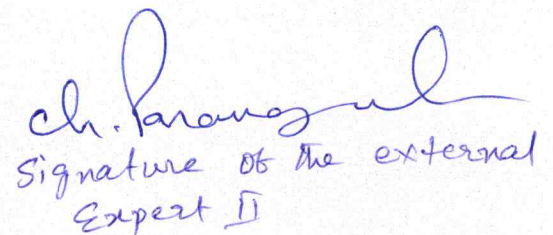 Ch.
Signature of the external
Expert II